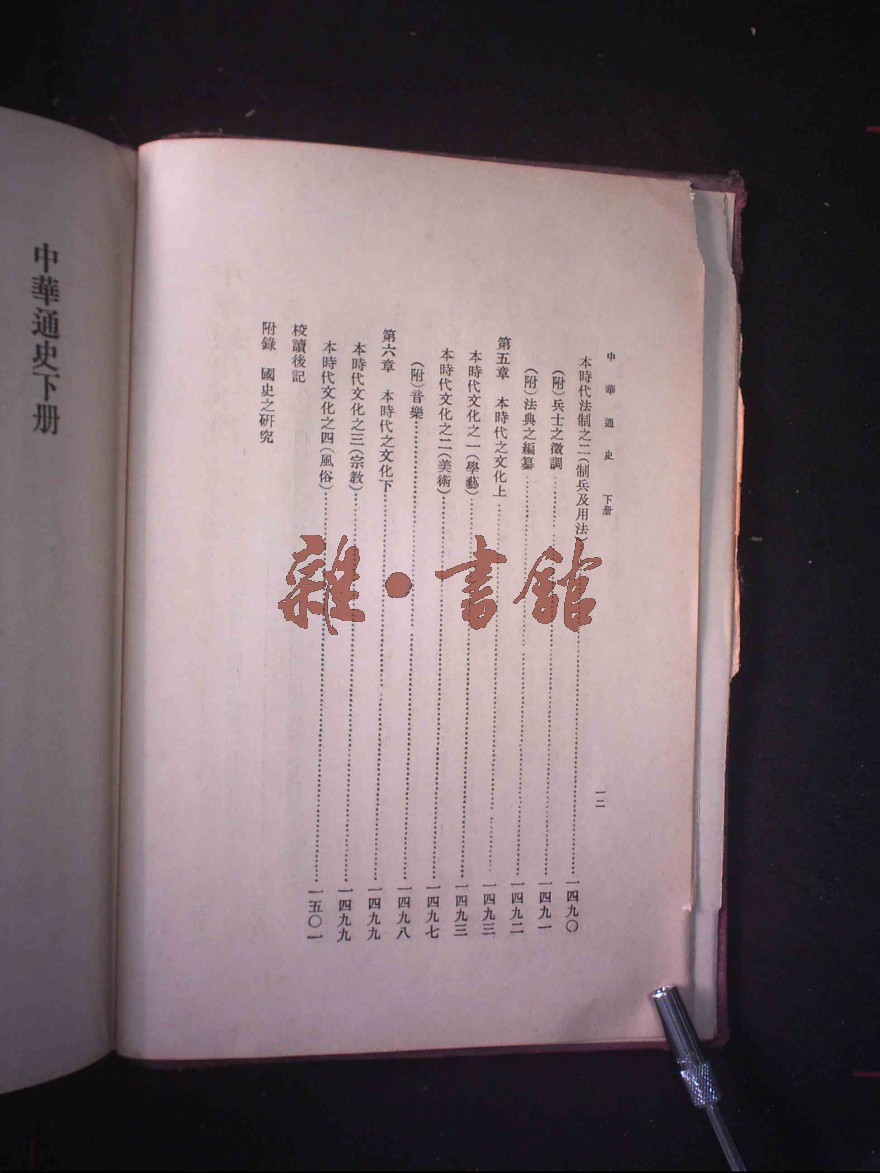 中華通史 下册
一二
本時代法制之二(制兵及用法)……一四九〇
(附)兵士之徵調……一四九一
(附)法典之編纂……一四九二
第五章 本時代之文化上……一四九三
本時代文化之一(學藝)……一四九三
本時代文化之二(美術)……一四九七
(附)音樂……一四九八
第六章 本時代之文化下……一四九九
本時代文化之三(宗教)……一四九九
本時代文化之四(風俗)……一五〇一
校讀後記
附錄 國史之研究
中華通史下册
雜·書館